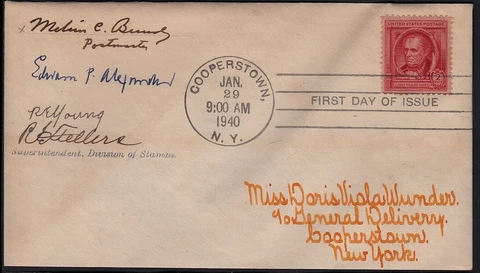 Melvin C. Bundy
Postmaster
Edwin P. Alexander
R E Young
R B Fellers
Superintendent, Division of Stamps.
UNITED STATES POSTAGE
2¢
COOPERSTOWN,
JAN.
29
9:00 AM
1940
N. Y.
FIRST DAY OF ISSUE
Miss Doris Viola Wunder.
℅ General Delivery.
Cooperstown.
New York.